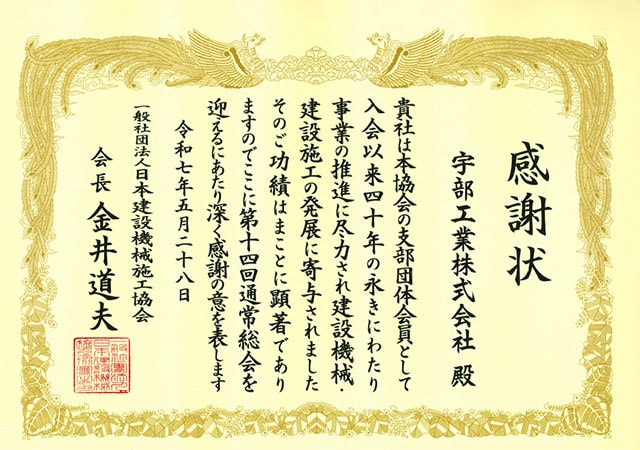 感謝状
宇部工業株式会社 殿
貴社は本協会の支部団体会員として
入会以来四十年の永きにわたり
事業の推進に尽力され建設機械・
建設施工の発展に寄与されました
そのご功績はまことに顕著であり
ますのでここに第十四回通常総会を
迎えるにあたり深く感謝の意を表します
令和七年五月二十八日
一般社団法人日本建設機械施工協会
会長 金井道夫